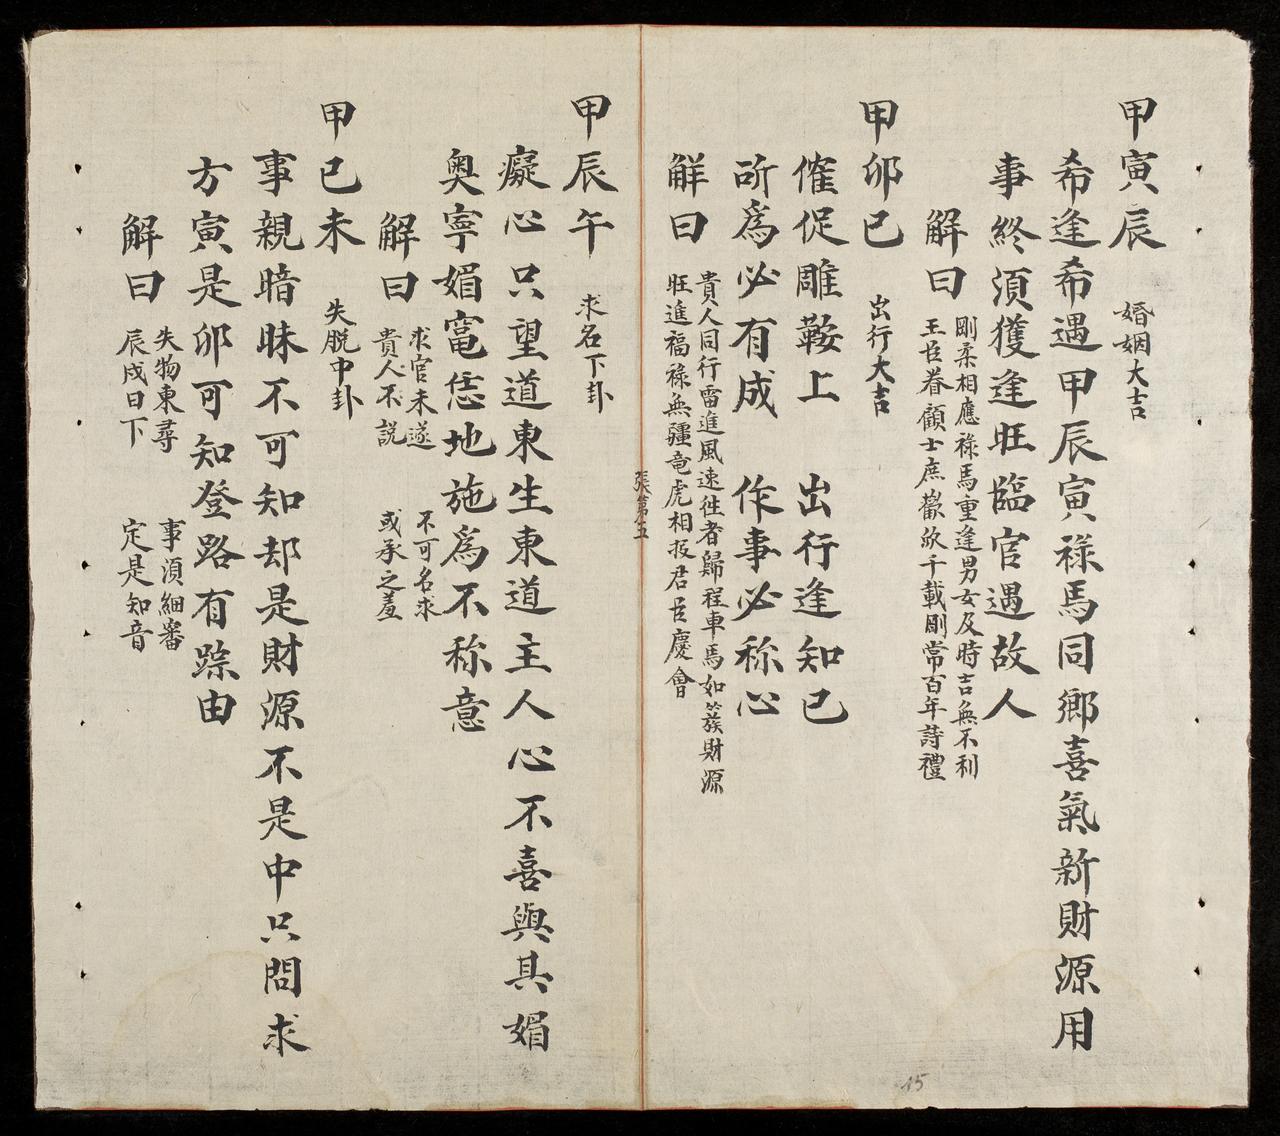 甲寅辰 婚姻大吉
希逢希遇甲辰寅祿馬同鄉喜氣新財源用
事終須獲逢旺臨官遇故人
解曰
剛柔相應祿馬重逢男女及時吉無不利
王臣眷顧士庶歡欣千載剛常百年詩禮
甲卯巳 出行大吉
催促雕鞍上 出行逢知己
所為必有成 作事必称心
解曰
貴人同行雷進風速徃者歸程車馬如簇財源
旺進福祿無疆竜虎相扳君臣慶會
張第五
甲辰午 求名下卦
癡心只望道東生東道主人心不喜與其媚
奧寧媚竈恁地施為不称意
解曰
求官未遂 不可名求
貴人不說 或承之羞
甲巳未 失脫中卦
事親暗昧不可知却是財源不是中只問求
方寅是卯可知登路有踪由
解曰
失物東尋 事湏細審
辰戌日下 定是知音
15